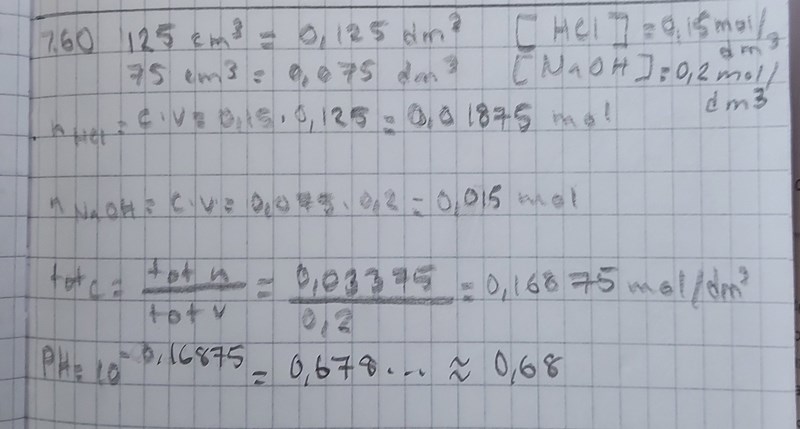 7.60 125 cm³ = 0,125 dm³ [HCl] = 0,15 mol/dm³
75 cm³ = 0,075 dm³ [NaOH] = 0,2 mol/dm³
n HCl = C·V = 0,15·0,125 = 0,01875 mol
n NaOH = C·V = 0,075·0,2 = 0,015 mol
tot C = tot n / tot V = 0,03375 / 0,2 = 0,16875 mol/dm³
PH = 10^-0,16875 = 0,678... ≈ 0,68